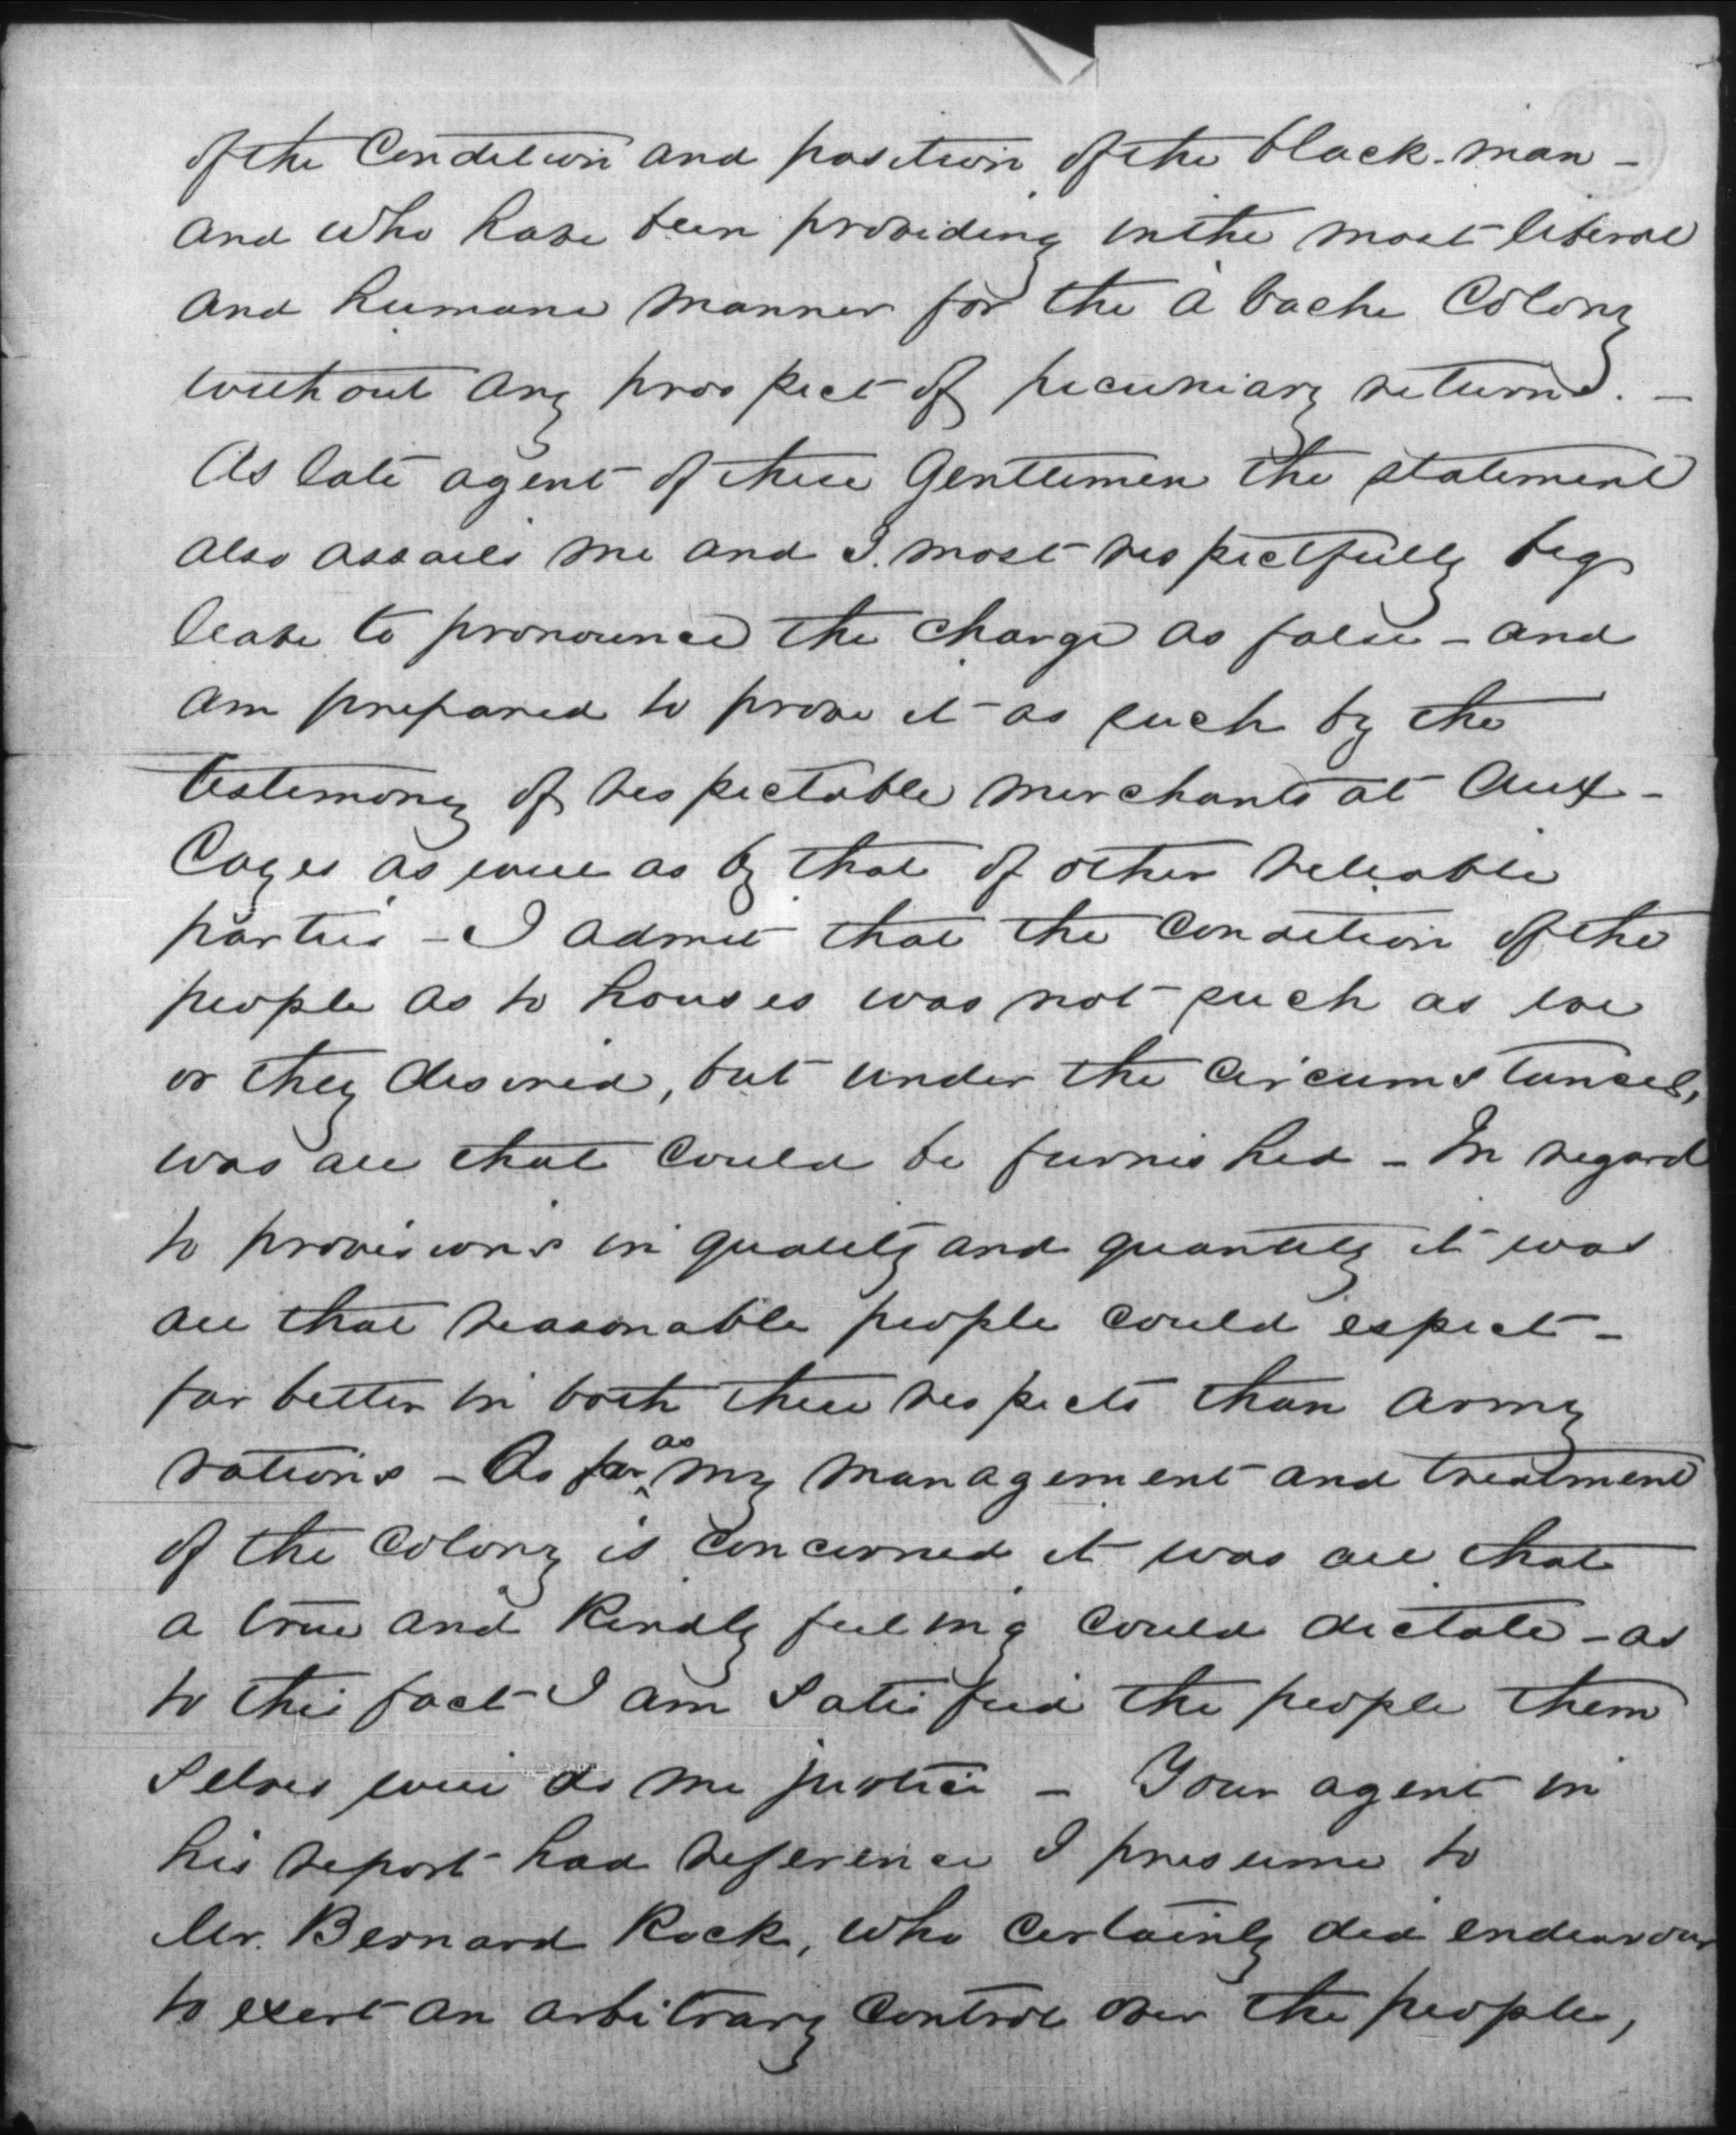 of the Condition and position of the black-man -
and who have been providing in the most liberal
and humane manner for the A'Vache Colony
without any prospect of pecuniary returns. -
As late agent of these Gentlemen the statement
also assails me and I. most respectfully beg
leave to pronounce the charge as false - and
am prepared to prove it as such by the
testimony of respectable merchants at Aux -
Cayes as well as by that of other reliable
parties - I admit that the Condition of the
people as to houses was not such as we
or they desired, but under the Circumstances,
was all that could be furnished - In regard
to provisions in quality and quantity it was
all that reasonable people could expect -
far better in both these respects than army
rations - As far as my management and treatment
of the Colony is concerned it was all that
a true and Kindly feeling could dictate - as
to this fact I am Satisfied the people them
Selves will do me justice - Your agent in
his report had reference I presume to
Mr. Bernard Kock, who certainly did endeavour
to exert an arbitrary Control over the people,